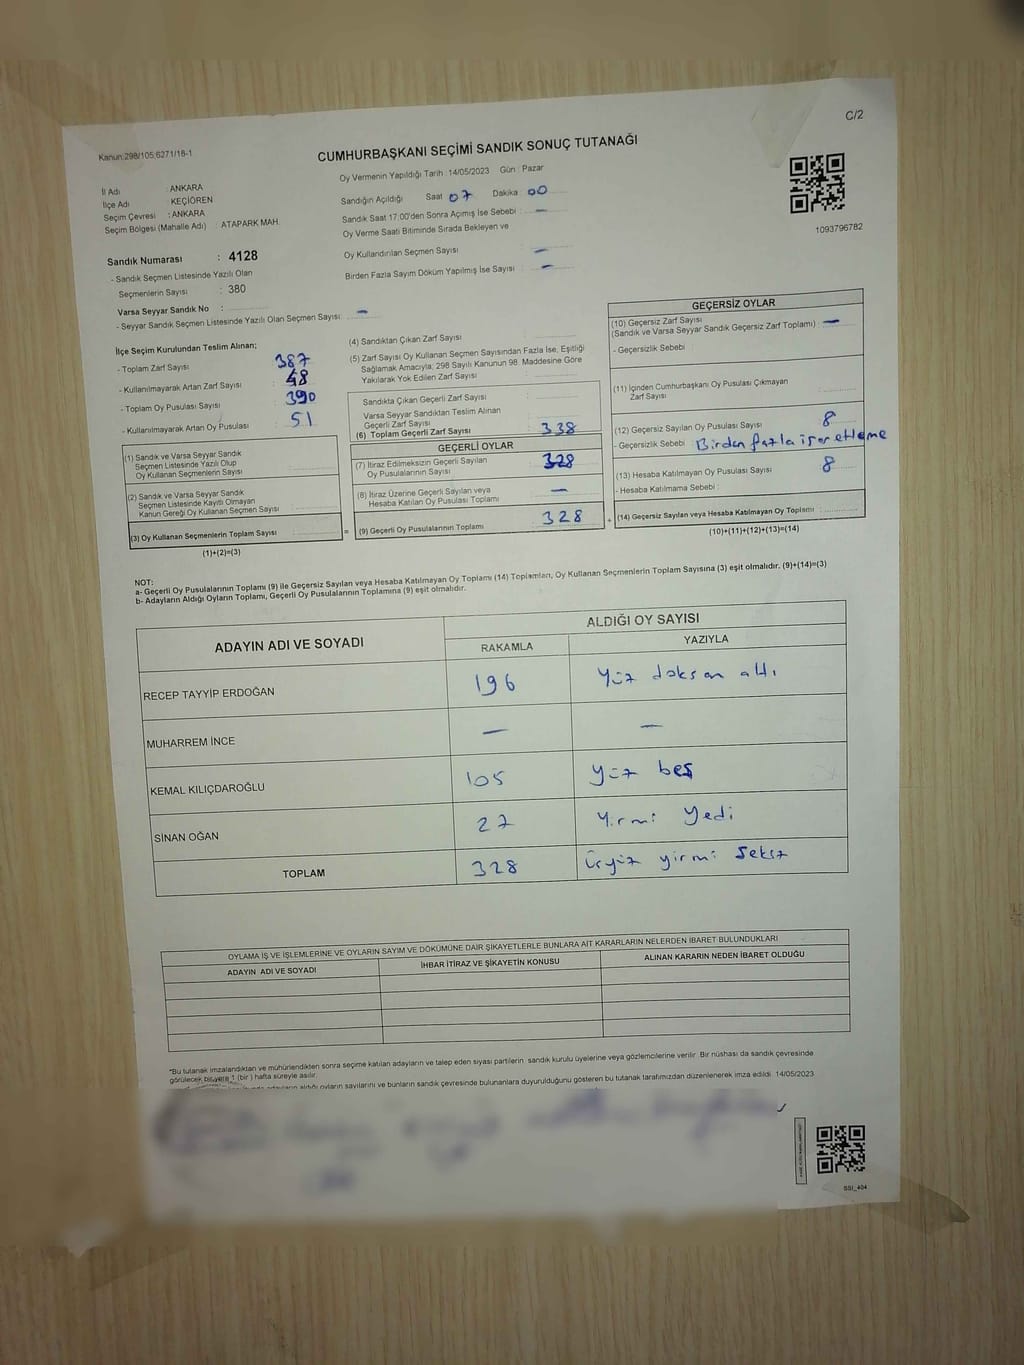 C/2
Kanun:298/105;6271/18-1
CUMHURBAŞKANI SEÇİMİ SANDIK SONUÇ TUTANAĞI
Oy Vermenin Yapıldığı Tarih : 14/05/2023 Gün : Pazar
İl Adı : ANKARA
İlçe Adı : KEÇİÖREN
Seçim Çevresi : ANKARA
Seçim Bölgesi (Mahalle Adı) : ATAPARK MAH.
Sandığın Açıldığı Saat 07 Dakika 00
Sandık Saat 17:00'den Sonra Açımış İse Sebebi : —
Oy Verme Saati Bitiminde Sırada Bekleyen ve
Oy Kullandırılan Seçmen Sayısı : —
Birden Fazla Sayım Döküm Yapılmış İse Sayısı : —
1093796782
Sandık Numarası : 4128
- Sandık Seçmen Listesinde Yazılı Olan
Seçmenlerin Sayısı : 380
Varsa Seyyar Sandık No :
- Seyyar Sandık Seçmen Listesinde Yazılı Olan Seçmen Sayısı: —
İlçe Seçim Kurulundan Teslim Alınan;
- Toplam Zarf Sayısı : 387
- Kullanılmayarak Artan Zarf Sayısı : 48
- Toplam Oy Pusulası Sayısı : 390
- Kullanılmayarak Artan Oy Pusulası : 51
(1) Sandık ve Varsa Seyyar Sandık
Seçmen Listesinde Yazılı Olup
Oy Kullanan Seçmenlerin Sayısı
(2) Sandık ve Varsa Seyyar Sandık
Seçmen Listesinde Kayıtlı Olmayan
Kanun Gereği Oy Kullanan Seçmen Sayısı
(3) Oy Kullanan Seçmenlerin Toplam Sayısı
(1)+(2)=(3)
=
(4) Sandıktan Çıkan Zarf Sayısı :
(5) Zarf Sayısı Oy Kullanan Seçmen Sayısından Fazla İse, Eşitliği
Sağlamak Amacıyla; 298 Sayılı Kanunun 98. Maddesine Göre
Yakılarak Yok Edilen Zarf Sayısı :
Sandıkta Çıkan Geçerli Zarf Sayısı :
Varsa Seyyar Sandıktan Teslim Alınan
Geçerli Zarf Sayısı :
(6) Toplam Geçerli Zarf Sayısı : 338
GEÇERLİ OYLAR
(7) İtiraz Edilmeksizin Geçerli Sayılan
Oy Pusulalarının Sayısı : 328
(8) İtiraz Üzerine Geçerli Sayılan veya
Hesaba Katılan Oy Pusulası Toplamı : —
(9) Geçerli Oy Pusulalarının Toplamı : 328
+
GEÇERSİZ OYLAR
(10) Geçersiz Zarf Sayısı
(Sandık ve Varsa Seyyar Sandık Geçersiz Zarf Toplamı) : —
- Geçersizlik Sebebi :
(11) İçinden Cumhurbaşkanı Oy Pusulası Çıkmayan
Zarf Sayısı :
(12) Geçersiz Sayılan Oy Pusulası Sayısı : 8
- Geçersizlik Sebebi : Birden fazla işaretleme
(13) Hesaba Katılmayan Oy Pusulası Sayısı : 8
- Hesaba Katılmama Sebebi :
(14) Geçersiz Sayılan veya Hesaba Katılmayan Oy Toplamı :
(10)+(11)+(12)+(13)=(14)
NOT:
a- Geçerli Oy Pusulalarının Toplamı (9) ile Geçersiz Sayılan veya Hesaba Katılmayan Oy Toplamı (14) Toplamları, Oy Kullanan Seçmenlerin Toplam Sayısına (3) eşit olmalıdır. (9)+(14)=(3)
b- Adayların Aldığı Oyların Toplamı, Geçerli Oy Pusulalarının Toplamına (9) eşit olmalıdır.
ADAYIN ADI VE SOYADI
ALDIĞI OY SAYISI
RAKAMLA YAZIYLA
RECEP TAYYİP ERDOĞAN 196 Yüz doksan altı
MUHARREM İNCE — —
KEMAL KILIÇDAROĞLU 105 Yüz beş
SİNAN OĞAN 27 Yirmi Yedi
TOPLAM 328 Üçyüz yirmi sekiz
OYLAMA İŞ VE İŞLEMLERİNE VE OYLARIN SAYIM VE DÖKÜMÜNE DAİR ŞİKAYETLERLE BUNLARA AİT KARARLARIN NELERDEN İBARET BULUNDUKLARI
ADAYIN ADI VE SOYADI İHBAR İTİRAZ VE ŞİKAYETİN KONUSU ALINAN KARARIN NEDEN İBARET OLDUĞU
*Bu tutanak imzalandıktan ve mühürlendikten sonra seçime katılan adayların ve talep eden siyasi partilerin sandık kurulu üyelerine veya gözlemcilerine verilir. Bir nüshası da sandık çevresinde
görülecek bir yere 1 (bir) hafta süreyle asılır.
adayların aldığı oyların sayılarını ve bunların sandık çevresinde bulunanlara duyurulduğunu gösteren bu tutanak tarafımızdan düzenlenerek imza edildi. 14/05/2023
SSI_404